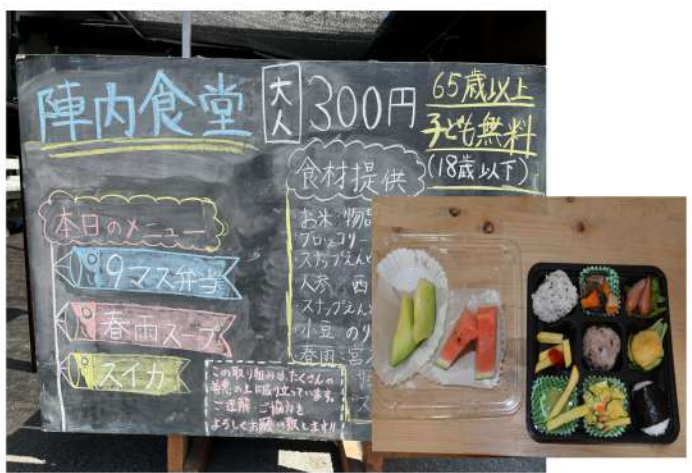 陣内食堂
大人
300円
65歳以上
子ども無料
(18歳以下)
本日のメニュー
9マス弁当
春雨スープ
スイカ
食材提供
お米
ブロッコリー
スナップえんど
人参 西
スナップえん
小豆 のり
春雨 宮
この取り組みは、たくさんの
善意の上に成り立っています。
ご理解・ご協力を
よろしくお願い致します!!